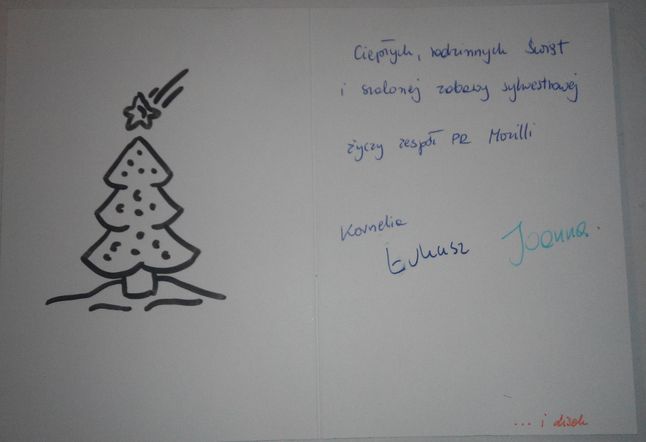 Ciepłych, rodzinnych Świąt
i szalonej zabawy sylwestrowej
życzy zespół PR Mozilli
Kornelia
Łukasz Joanna
... i